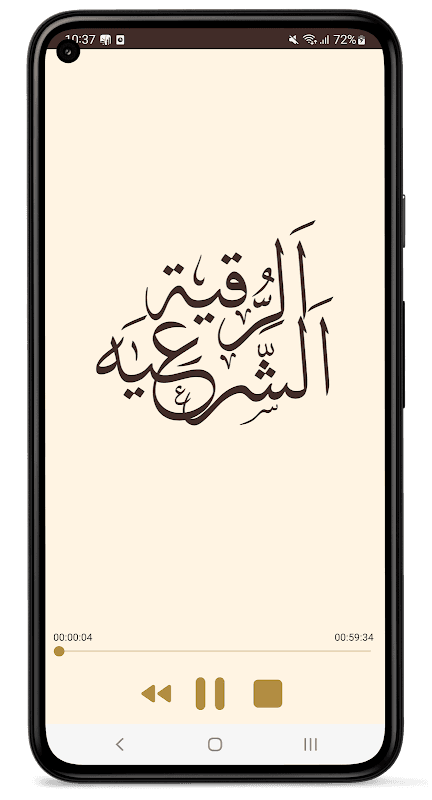 10:37 72%
الرقية
الشرعيه
00:00:04 00:59:34